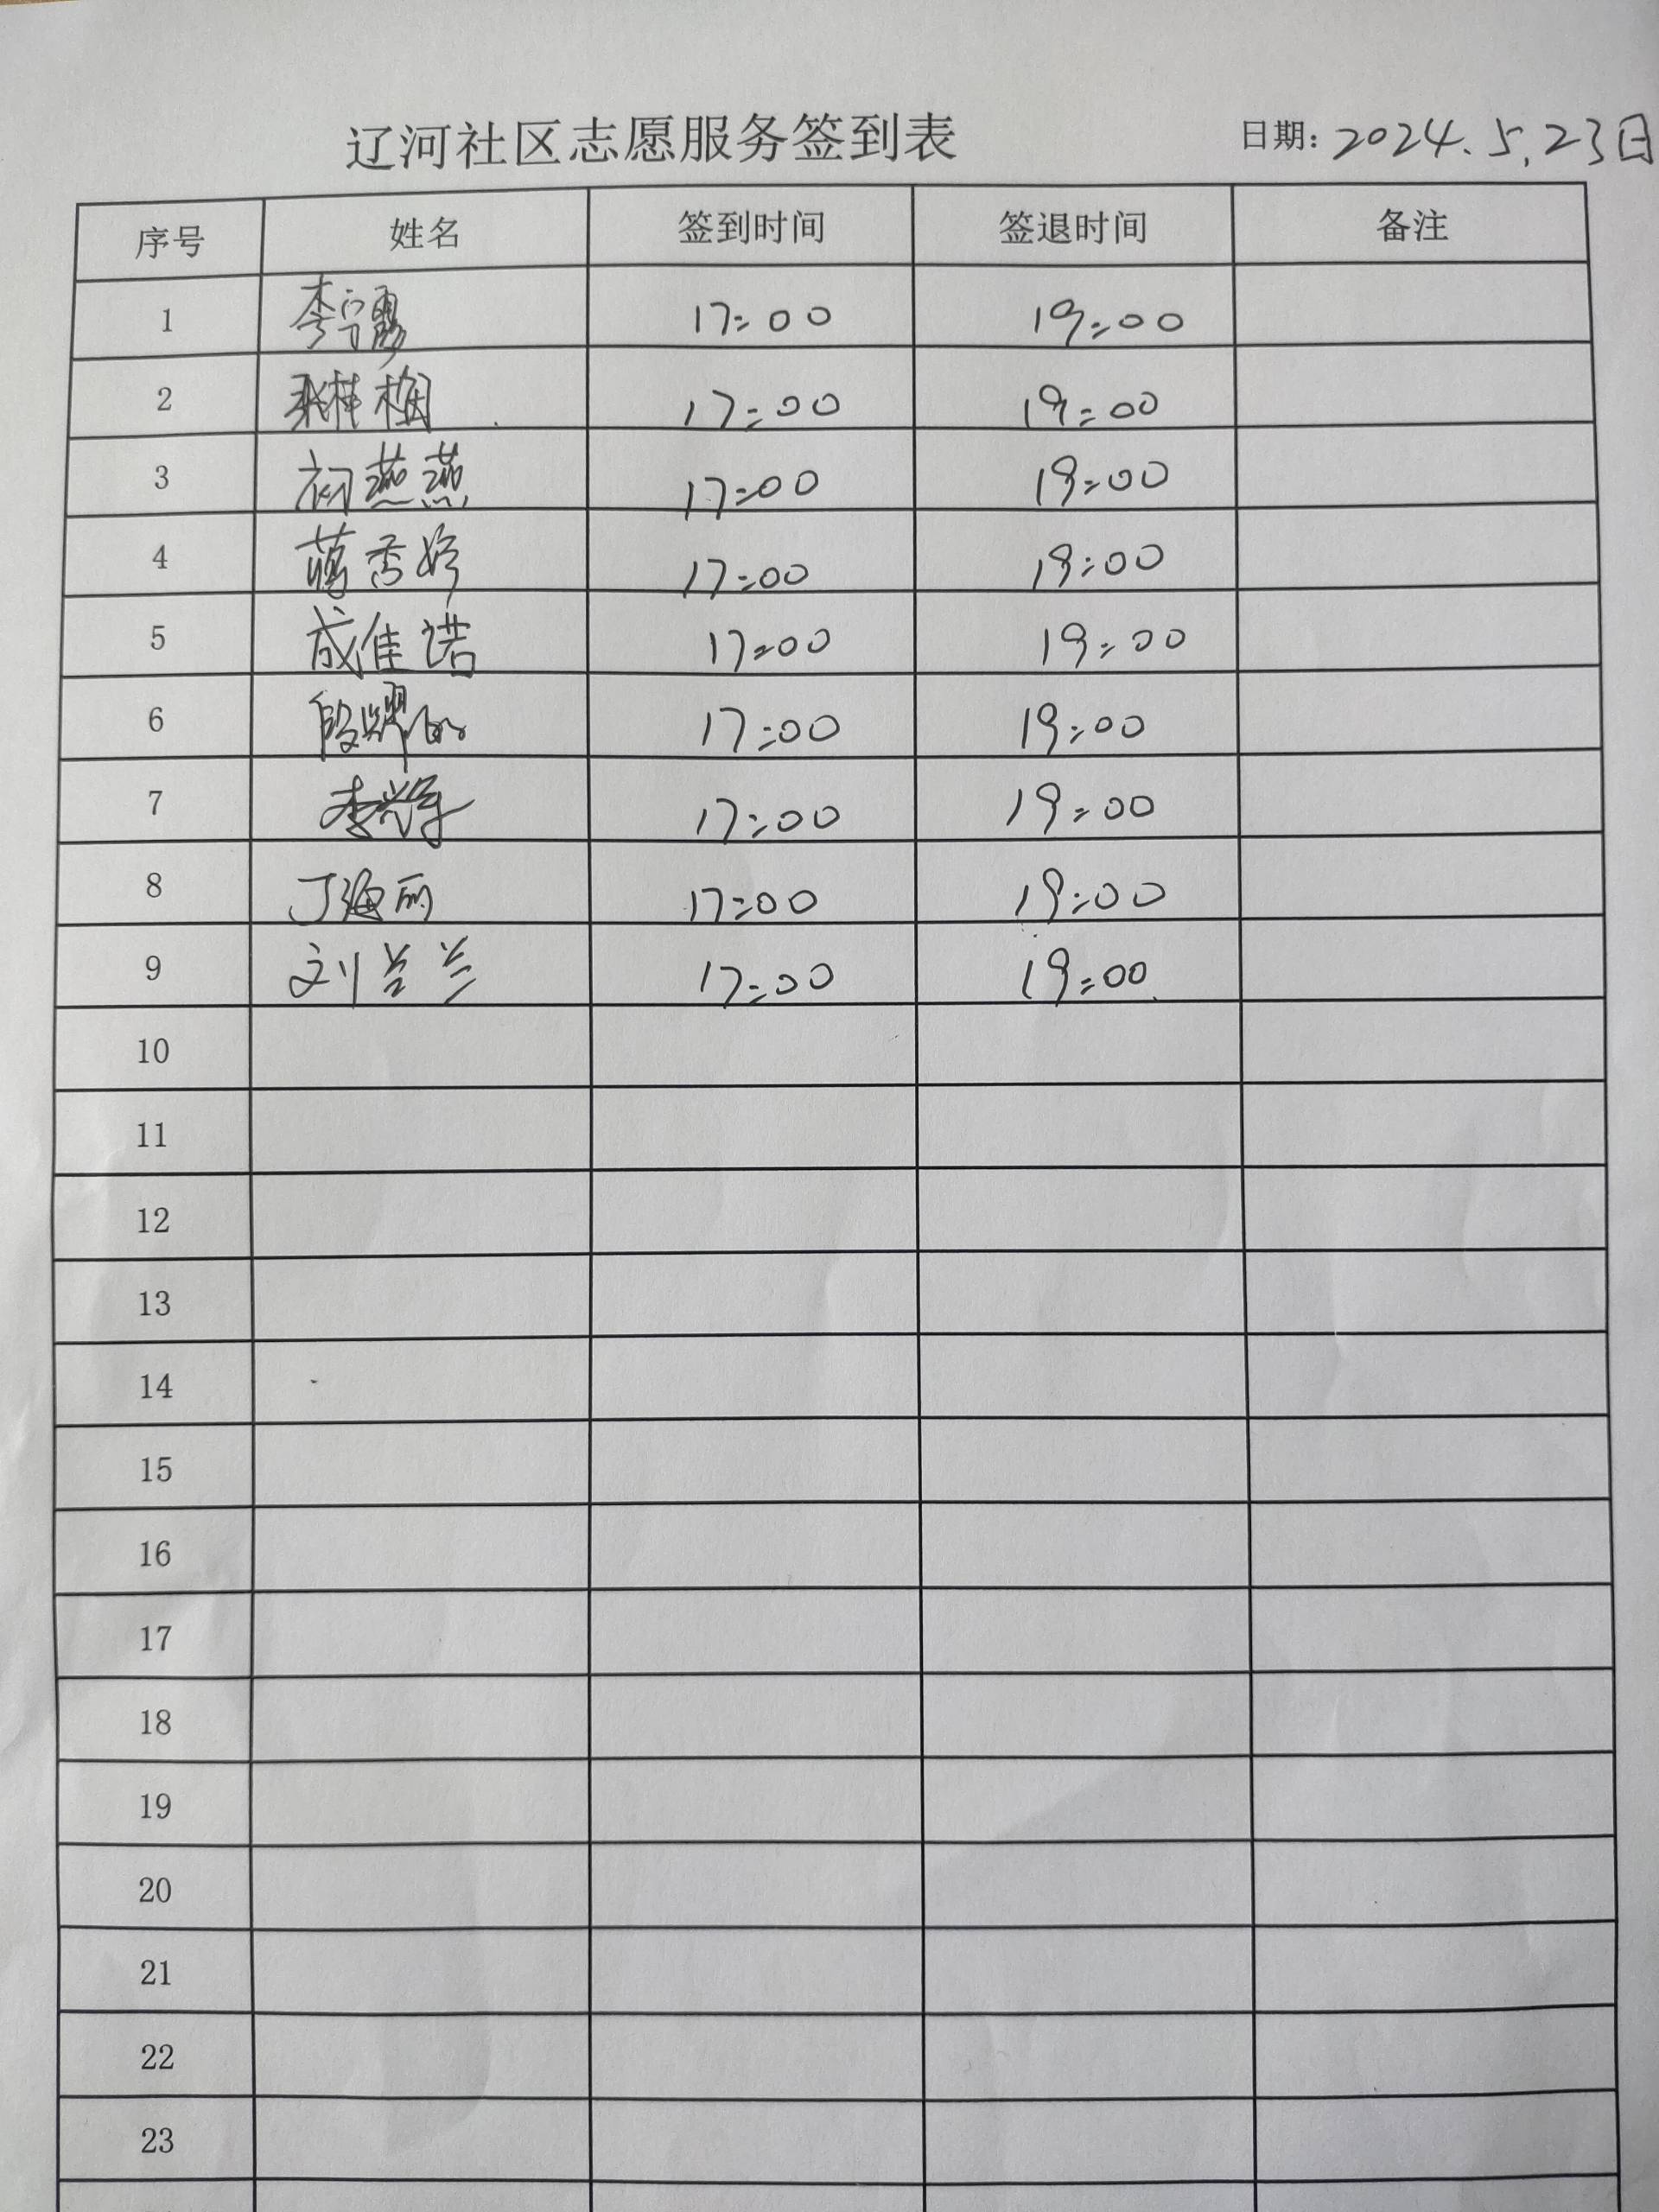 辽河社区志愿服务签到表 日期: 2024.5.23日
序号 姓名 签到时间 签退时间 备注
1 李宁霞 17:00 19:00
2 桂梅 17:00 19:00
3 初燕燕 17:00 19:00
4 秀婷 17:00 19:00
5 成佳诺 17:00 19:00
6 段 17:00 19:00
7 李 17:00 19:00
8 丁海丽 17:00 19:00
9 刘兰兰 17:00 19:00
10
11
12
13
14
15
16
17
18
19
20
21
22
23